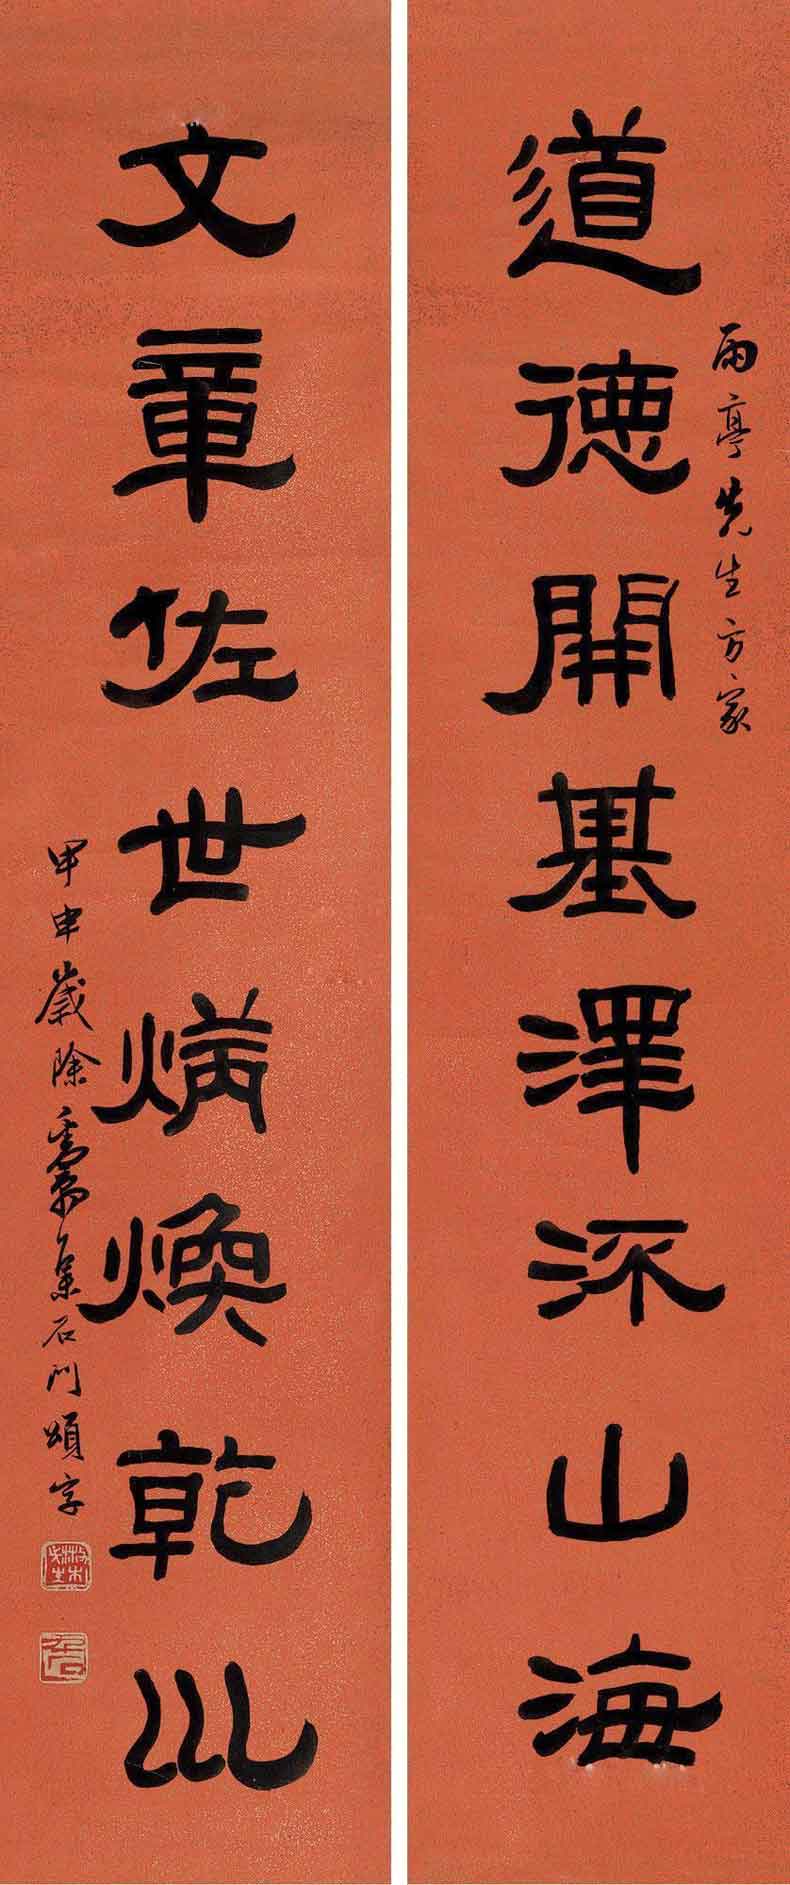 道德開基澤山海
雨亭先生方家
文章佐世炳煥乾巛
甲申歲除集石門頌字